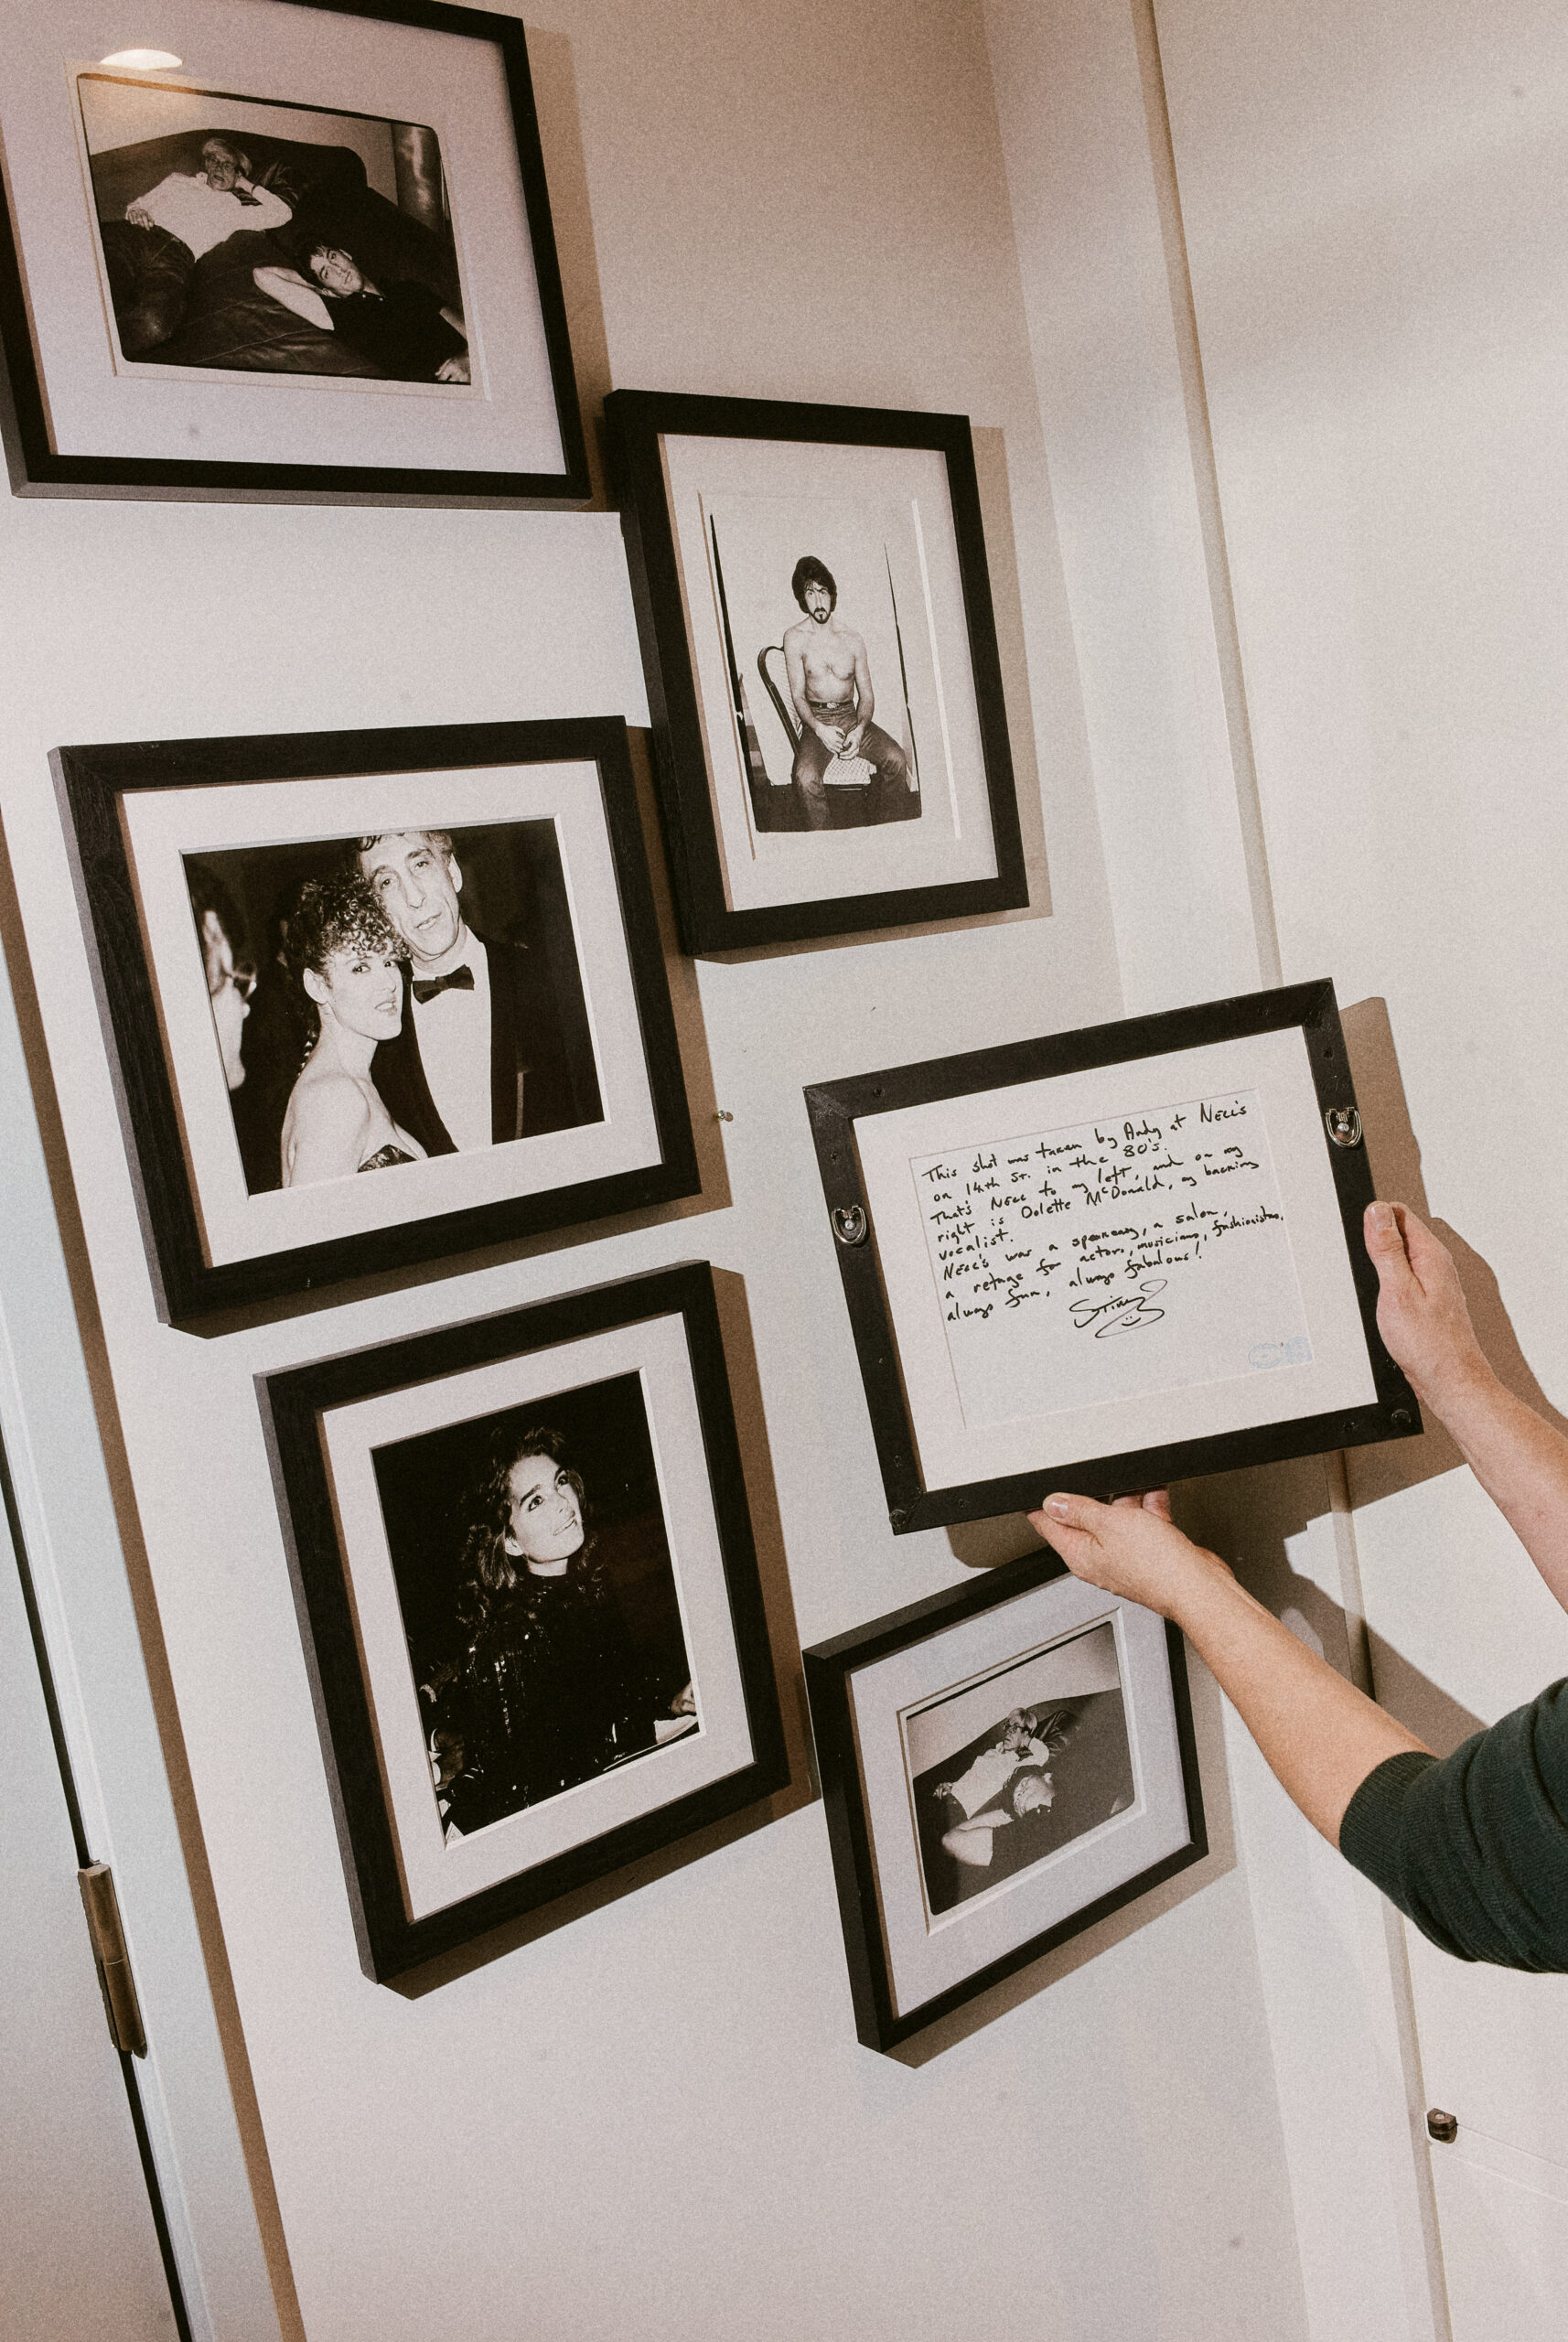 This shot was taken by Andy at Nell's
on 14th St. in the 80's.
That's Nell to my left, and on my
right is Dolette McDonald, my backing
vocalist.
Nell's was a speakeasy, a salon,
a refuge for actors, musicians, fashionistas,
always fun, always fabulous!
Sting